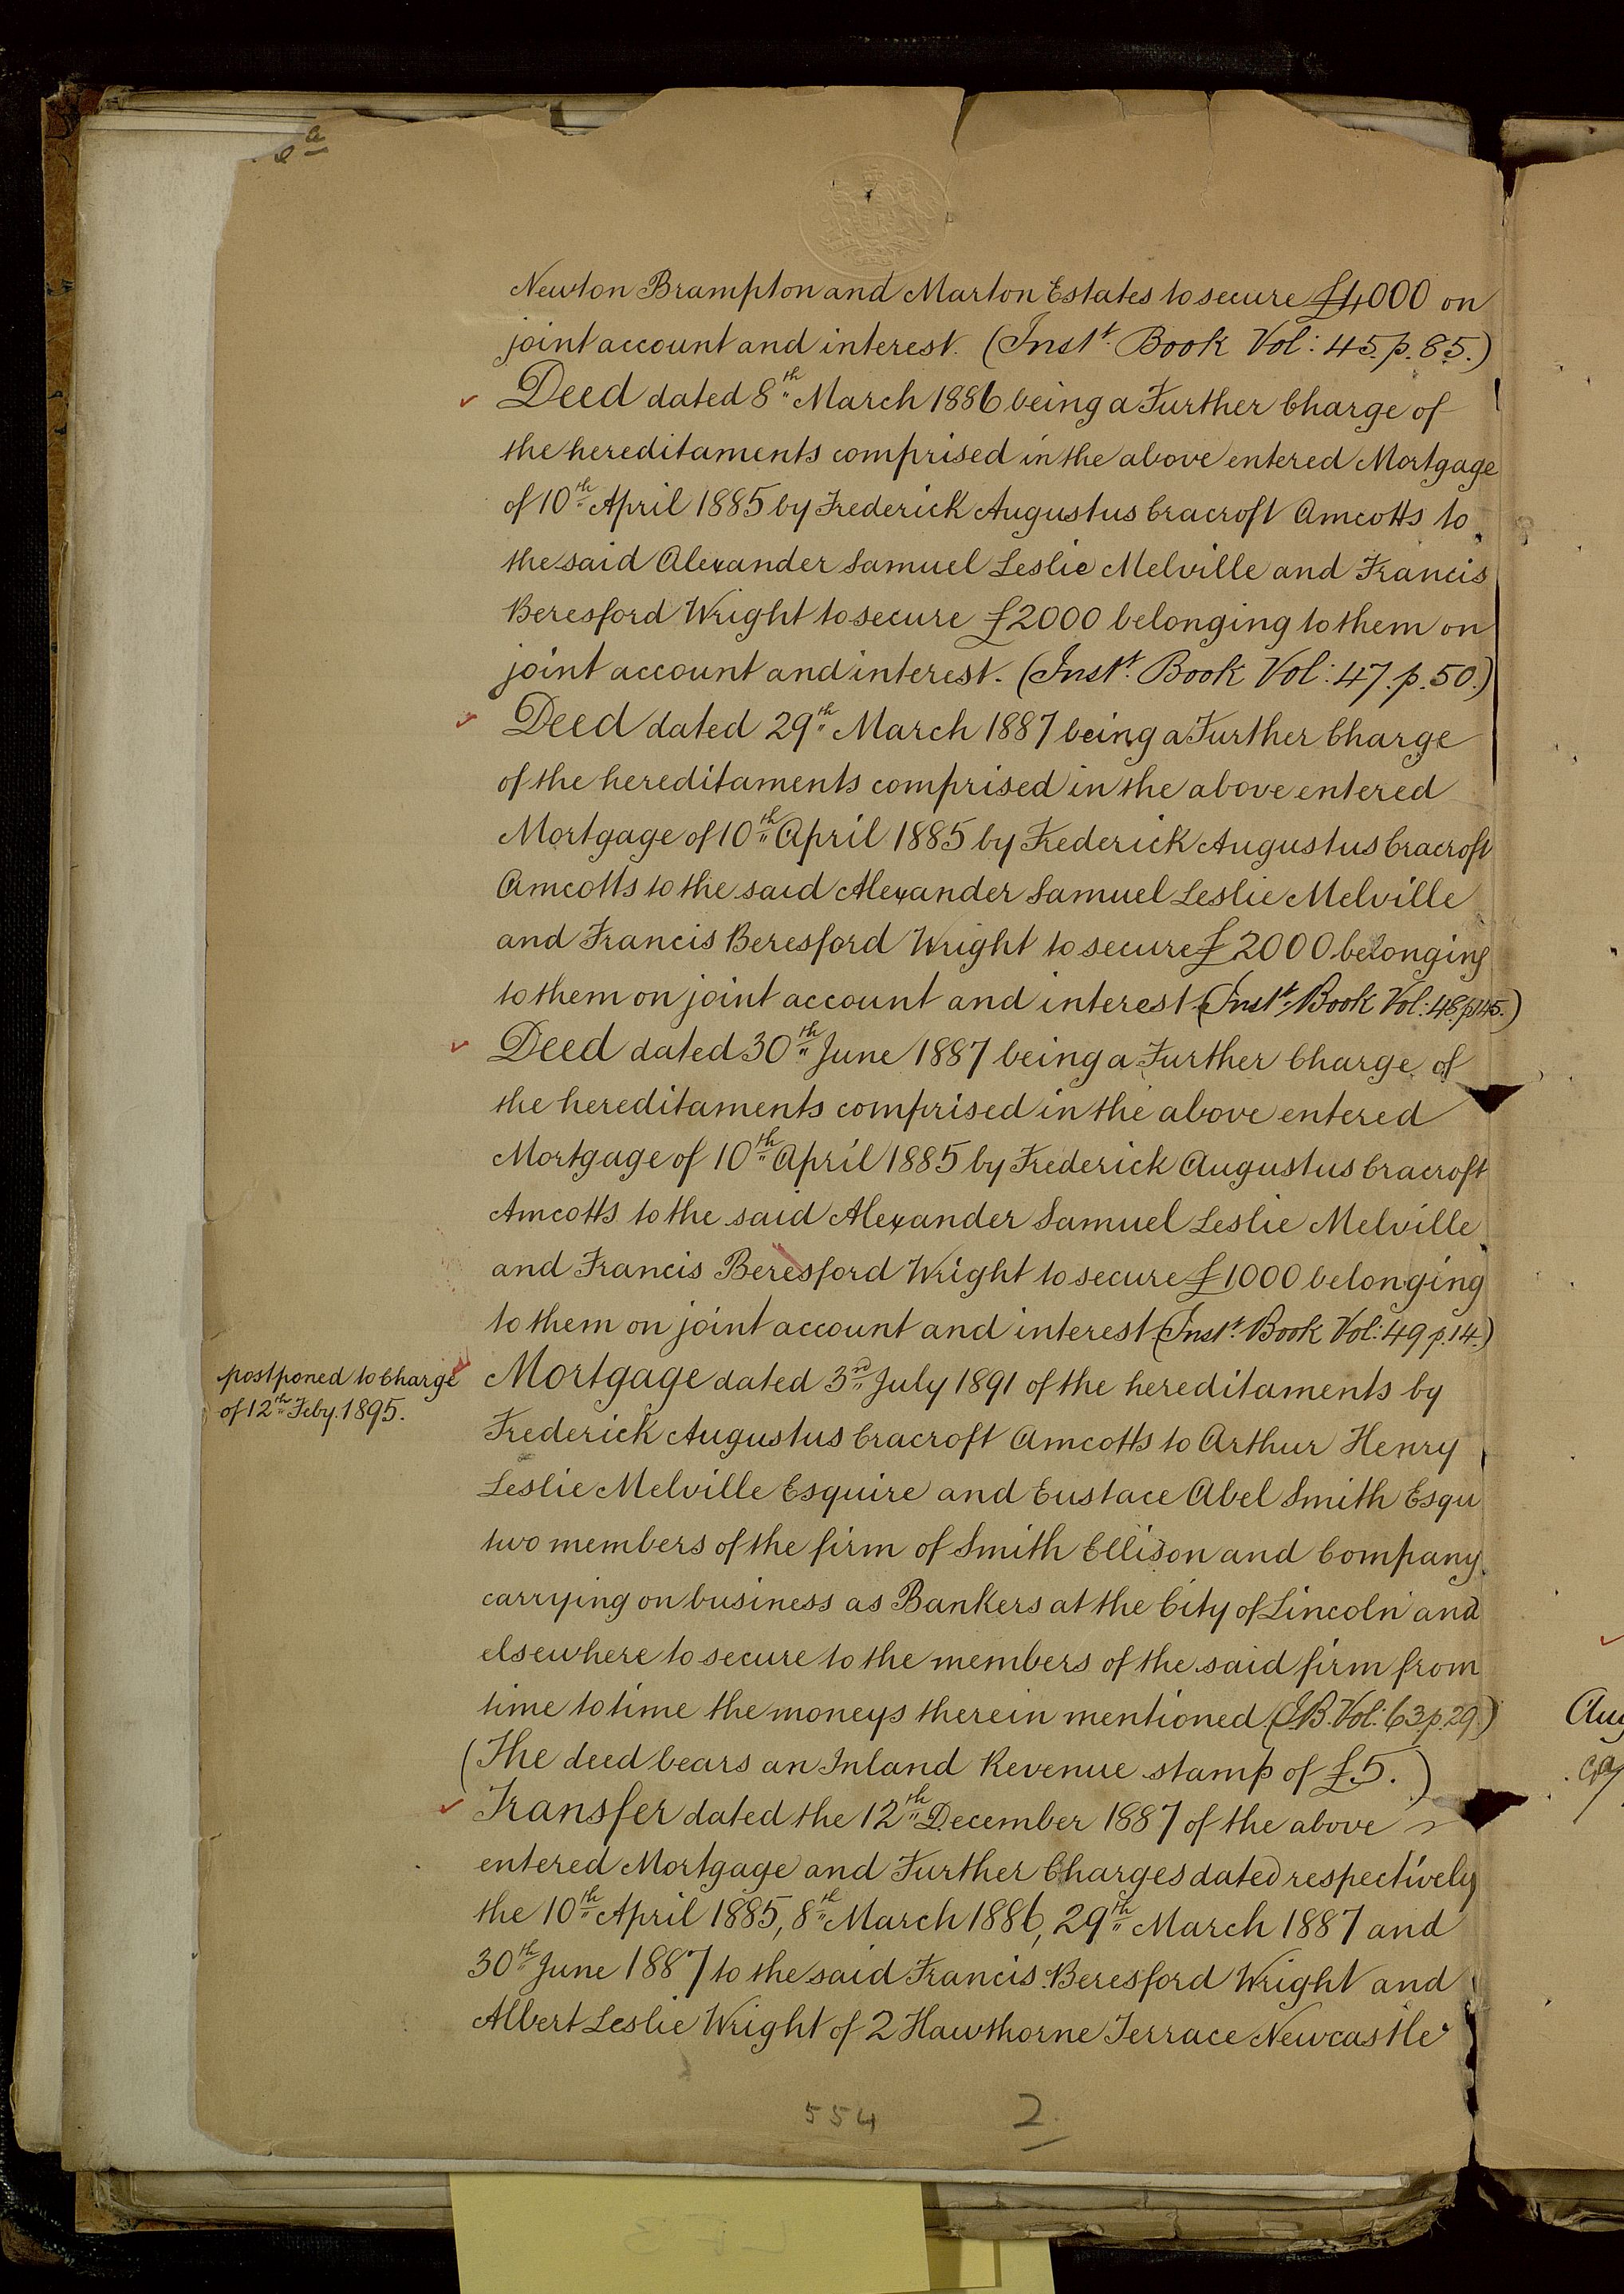 Newton Brampton and Marton Estates to secure £4000 on
joint account and interest. (Inst.t Book Vol: 45. p. 85.)
Deed dated 8th March 1886 being a Further Charge of
the hereditaments comprised in the above entered Mortgage
of 10th April 1885 by Frederick Augustus Cracroft Amcotts to
the said Alexander Samuel Leslie Melville and Francis
Beresford Wright to secure £2000 belonging to them on
joint account and interest. (Inst.t Book Vol: 47. p. 50.)
Deed dated 29th March 1887 being a Further Charge
of the hereditaments comprised in the above entered
Mortgage of 10th April 1885 by Frederick Augustus Cracroft
Amcotts to the said Alexander Samuel Leslie Melville
and Francis Beresford Wright to secure £2000 belonging
to them on joint account and interest (Inst.t Book Vol: 48. p145.)
Deed dated 30th June 1887 being a Further Charge of
the hereditaments comprised in the above entered
Mortgage of 10th April 1885 by Frederick Augustus Cracroft
Amcotts to the said Alexander Samuel Leslie Melville
and Francis Beresford Wright to secure £1000 belonging
to them on joint account and interest (Inst.t Book Vol: 49 p. 14.)
postponed to Charge
of 12th Feby. 1895.
Mortgage dated 3rd July 1891 of the hereditaments by
Frederick Augustus Cracroft Amcotts to Arthur Henry
Leslie Melville Esquire and Eustace Abel Smith Esqu
two members of the firm of Smith Ellison and Company
carrying on business as Bankers at the City of Lincoln and
elsewhere to secure to the members of the said firm from
time to time the moneys therein mentioned (I.B. Vol: 63. p. 29.)
(The deed bears an Inland Revenue stamp of £5.)
Transfer dated the 12th December 1887 of the above
entered Mortgage and Further Charges dated respectively
the 10th April 1885, 8th March 1886, 29th March 1887 and
30th June 1887 to the said Francis Beresford Wright and
Albert Leslie Wright of 2 Hawthorne Terrace Newcastle
554 2
Aug